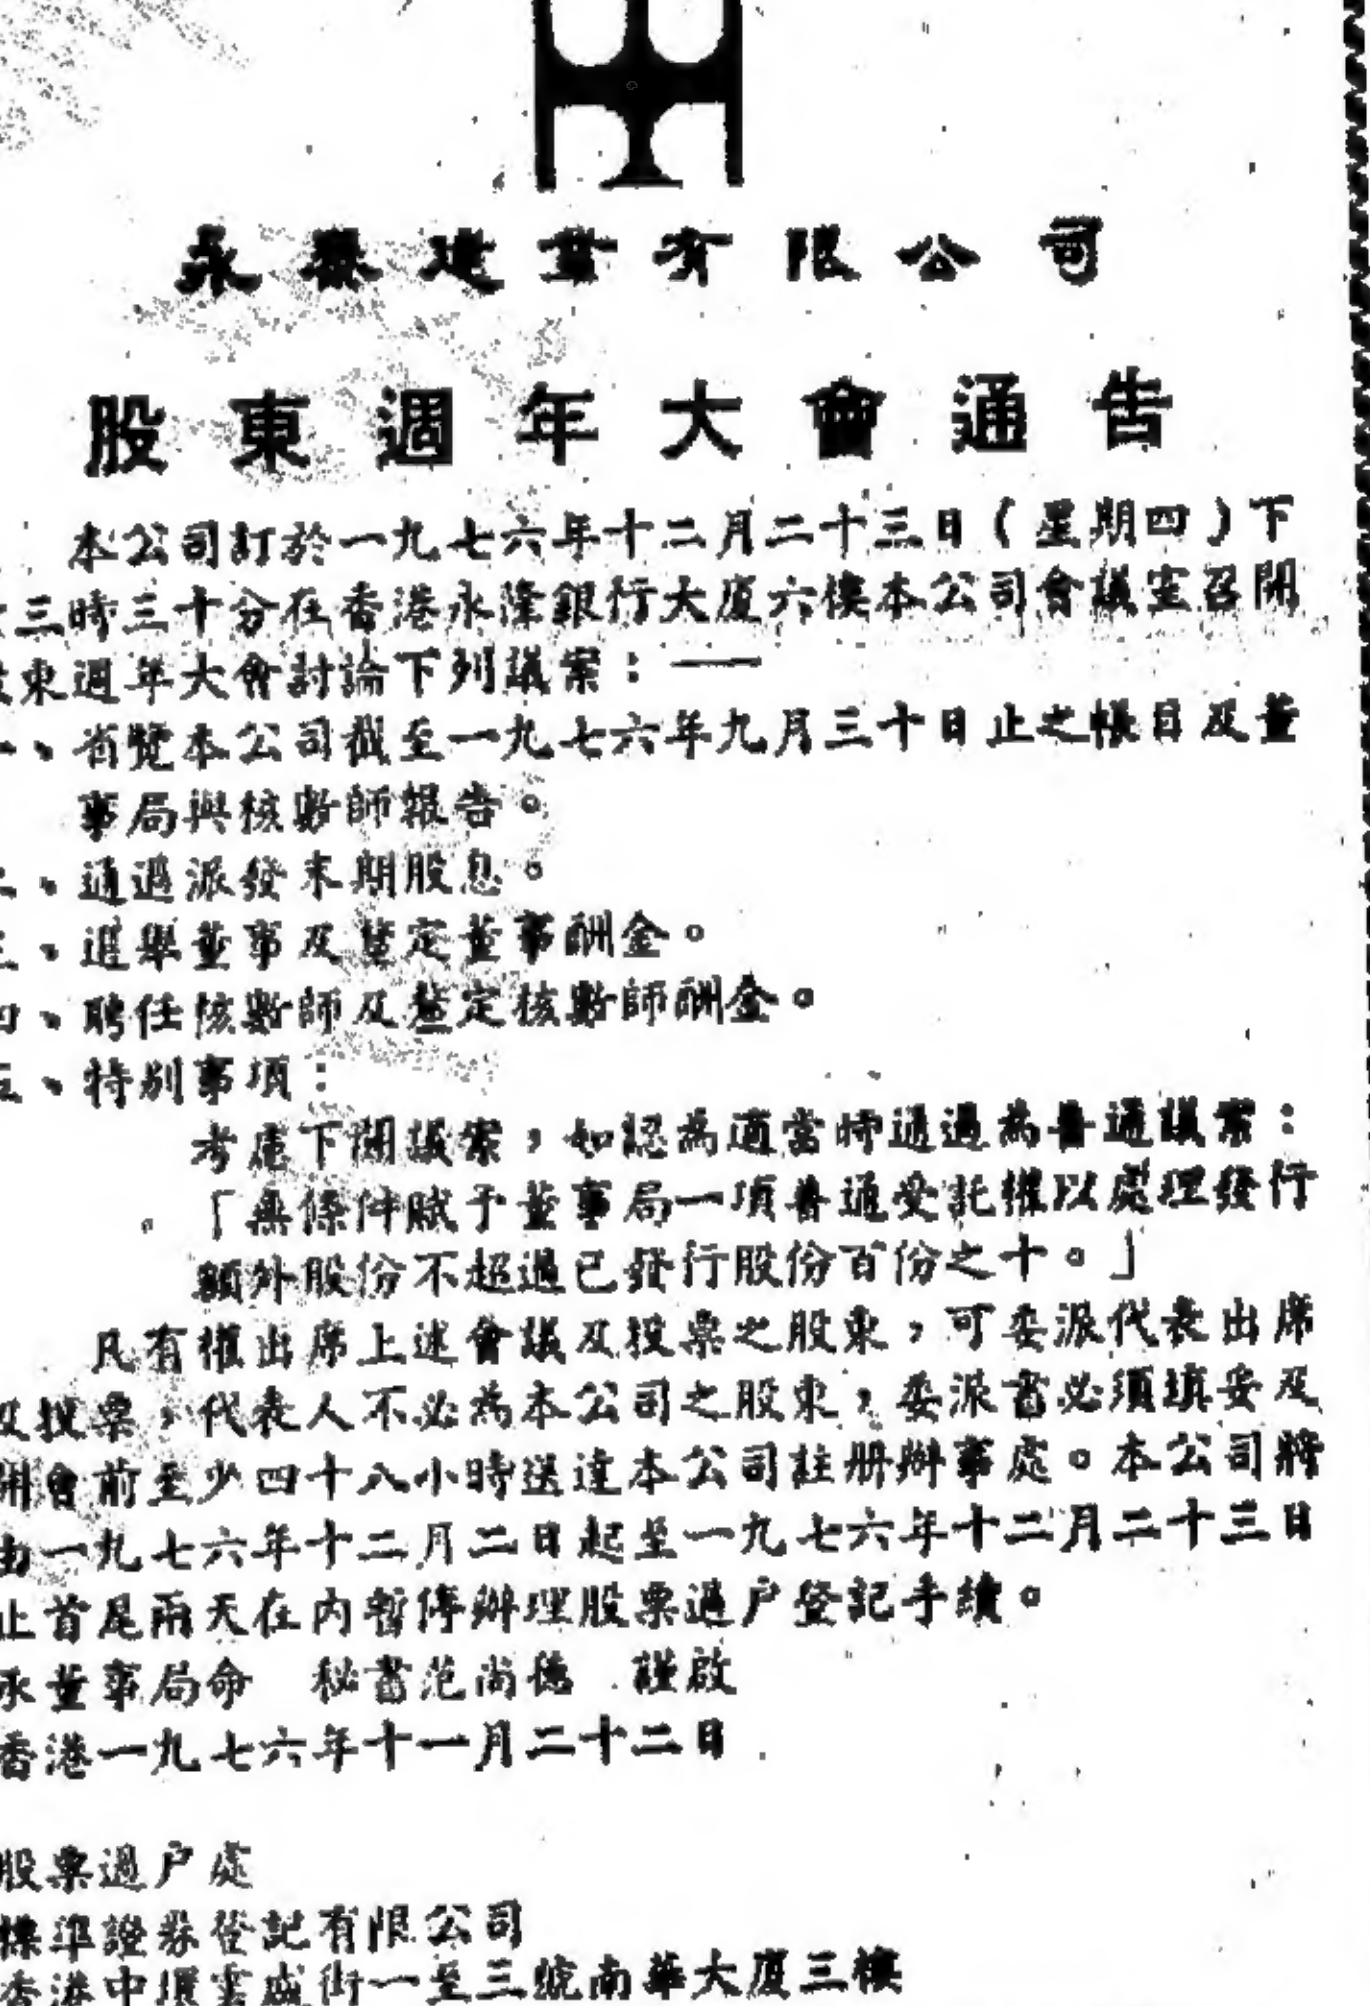 永泰建業有限公司
股東週年大會通告
本公司訂於一九七六年十二月二十三日(星期四)下
三時三十分在香港永隆銀行大廈六樓本公司會議室召開
東週年大會討論下列議案：——
、省覽本公司截至一九七六年九月三十日止之帳目及董
事局與核數師報告。
、通過派發末期股息。
三、選舉董事及釐定董事酬金。
四、聘任核數師及釐定核數師酬金。
五、特別事項：
考慮下開議案，如認為適當時通過為普通議案：
「無條件賦予董事局一項普通受託權以處理發行
額外股份不超過已發行股份百份之十。」
凡有權出席上述會議及投票之股東，可委派代表出席
及投票，代表人不必為本公司之股東，委派書必須填妥及
開會前至少四十八小時送達本公司註册辦事處。本公司將
由一九七六年十二月二日起至一九七六年十二月二十三日
止首尾兩天在內暫停辦理股票過户登記手續。
承董事局命 秘書范尚德 謹啟
香港一九七六年十一月二十二日
股票過户處
標準證券登記有限公司
香港中環雲咸街一至三號南華大廈三樓